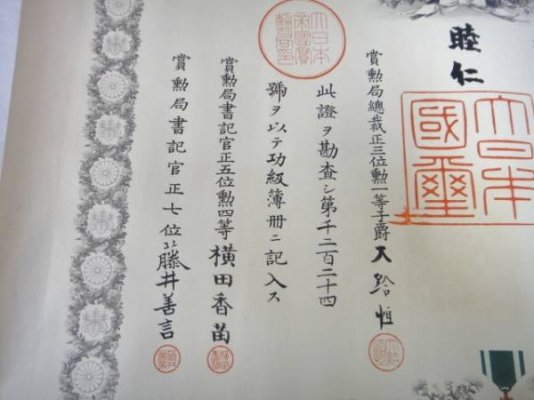 睦仁
大日本
國璽
賞勲局總裁正三位勲一等子爵大給恒
此證ヲ勘査シ第千二百二十四
號ヲ以テ功級簿冊ニ記入ス
賞勲局書記官正五位勲四等横田香苗
賞勲局書記官正七位藤井善言